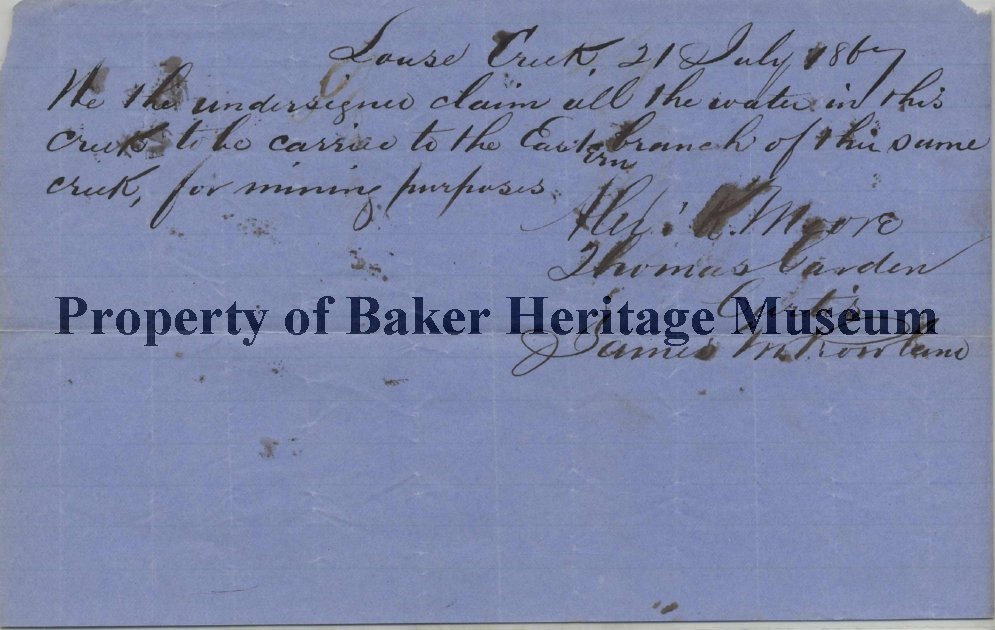 Louse Creek, 21 July 1867
We the undersigned claim all the water in this
creek to be carried to the Eastern branch of this same
creek, for mining purposes
Alex. K. Moore
Thomas Carden
Curtis
Property of Baker Heritage Museum
James M Rowland